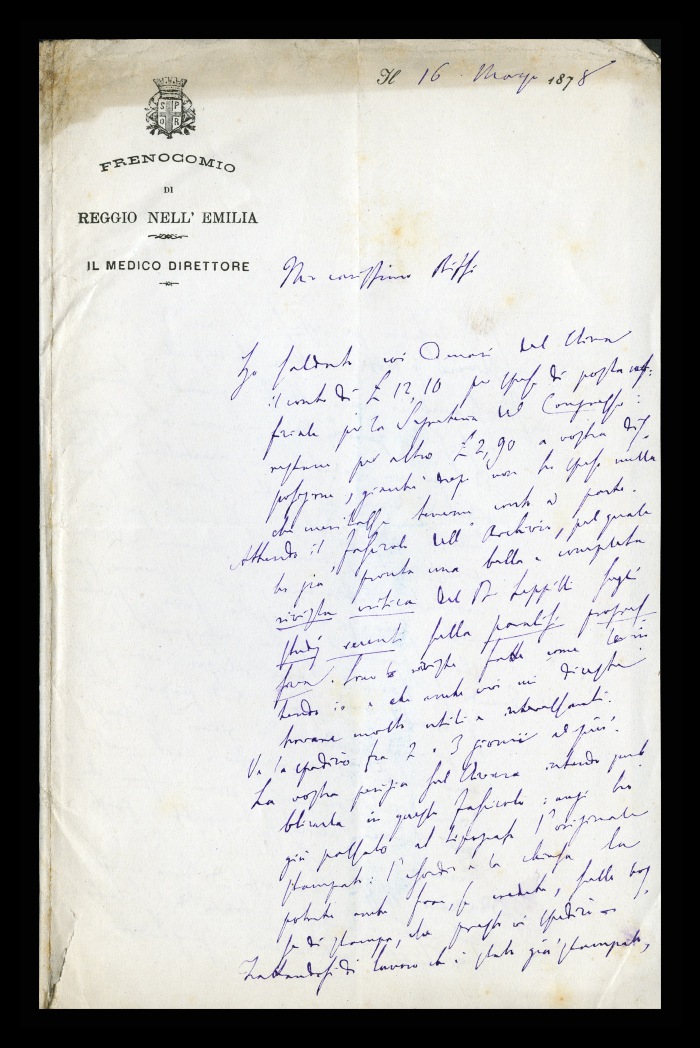 Il 16 Marzo 1878
S P Q R
FRENOCOMIO
DI
REGGIO NELL' EMILIA
IL MEDICO DIRETTORE
Mio carissimo Biffi
Ho saldato coi Denari del
il conto di £ 12,10 per spese di posta
per la Segreteria del Congresso:
restano per altro £ 2,90 a vostra dis-
posizione, giacchè non ho speso nulla
che meritasse tenerne conto a parte.
Attendo il fascicolo dell' Archivio, pel quale
ho già pronta una bella e completa
rivista critica del Dr Seppilli sugli
studj recenti sulla paralisi progres-
siva. Sono riviste fatte come le in-
tendo io e che anche voi mi diceste
trovare molto utili e interessanti.
Ve la spedirò fra 2 o 3 giorni al più.
La vostra perizia sul intendo pub-
blicarla in questo fascicolo: anzi ho
già passato al tipografo l' originale
stampato: l' esordio e la chiusa la
potrete anche fare, se credete, sulle boz-
ze di stampa, che presto vi spedirò
Trattandosi di lavoro che è stato già stampato,